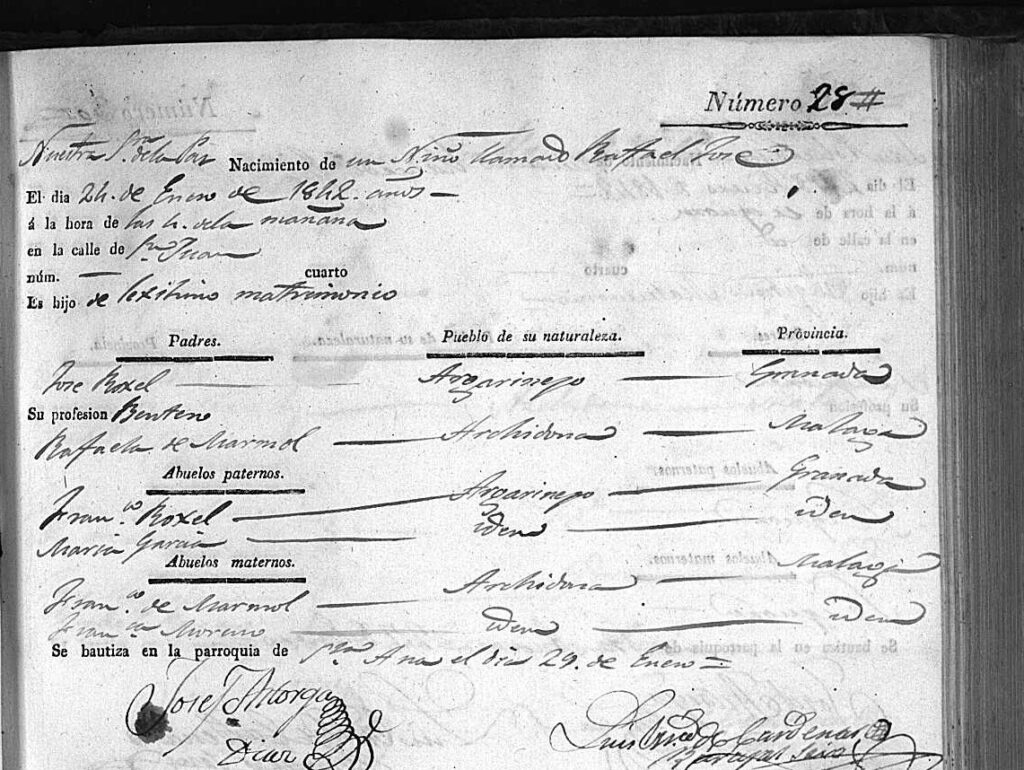 Número 28
Nuestra Sra. de la Paz Nacimiento de un Niño llamado Raffael Jose
El dia 24. de Enero de 1842. años
á la hora de las 4. de la mañana
en la calle de Sn. Juan
núm. — cuarto
Es hijo de lexitimo matrimonio
Padres. Pueblo de su naturaleza. Provincia.
Jose Roxel — Argarinejo — Granada
Su profesion Bentero
Rafaela de Marmol — Archidona — Malaga
Abuelos paternos.
Franco. Roxel — Argarinejo — Granada
Maria Garcia — iden — iden
Abuelos maternos.
Franco. de Marmol — Archidona — Malaga
Franca. Moreno — iden — iden
Se bautiza en la parroquia de Sta. Ana el dia 29. de Enero
Jose
Diaz
Luis de Cardenas